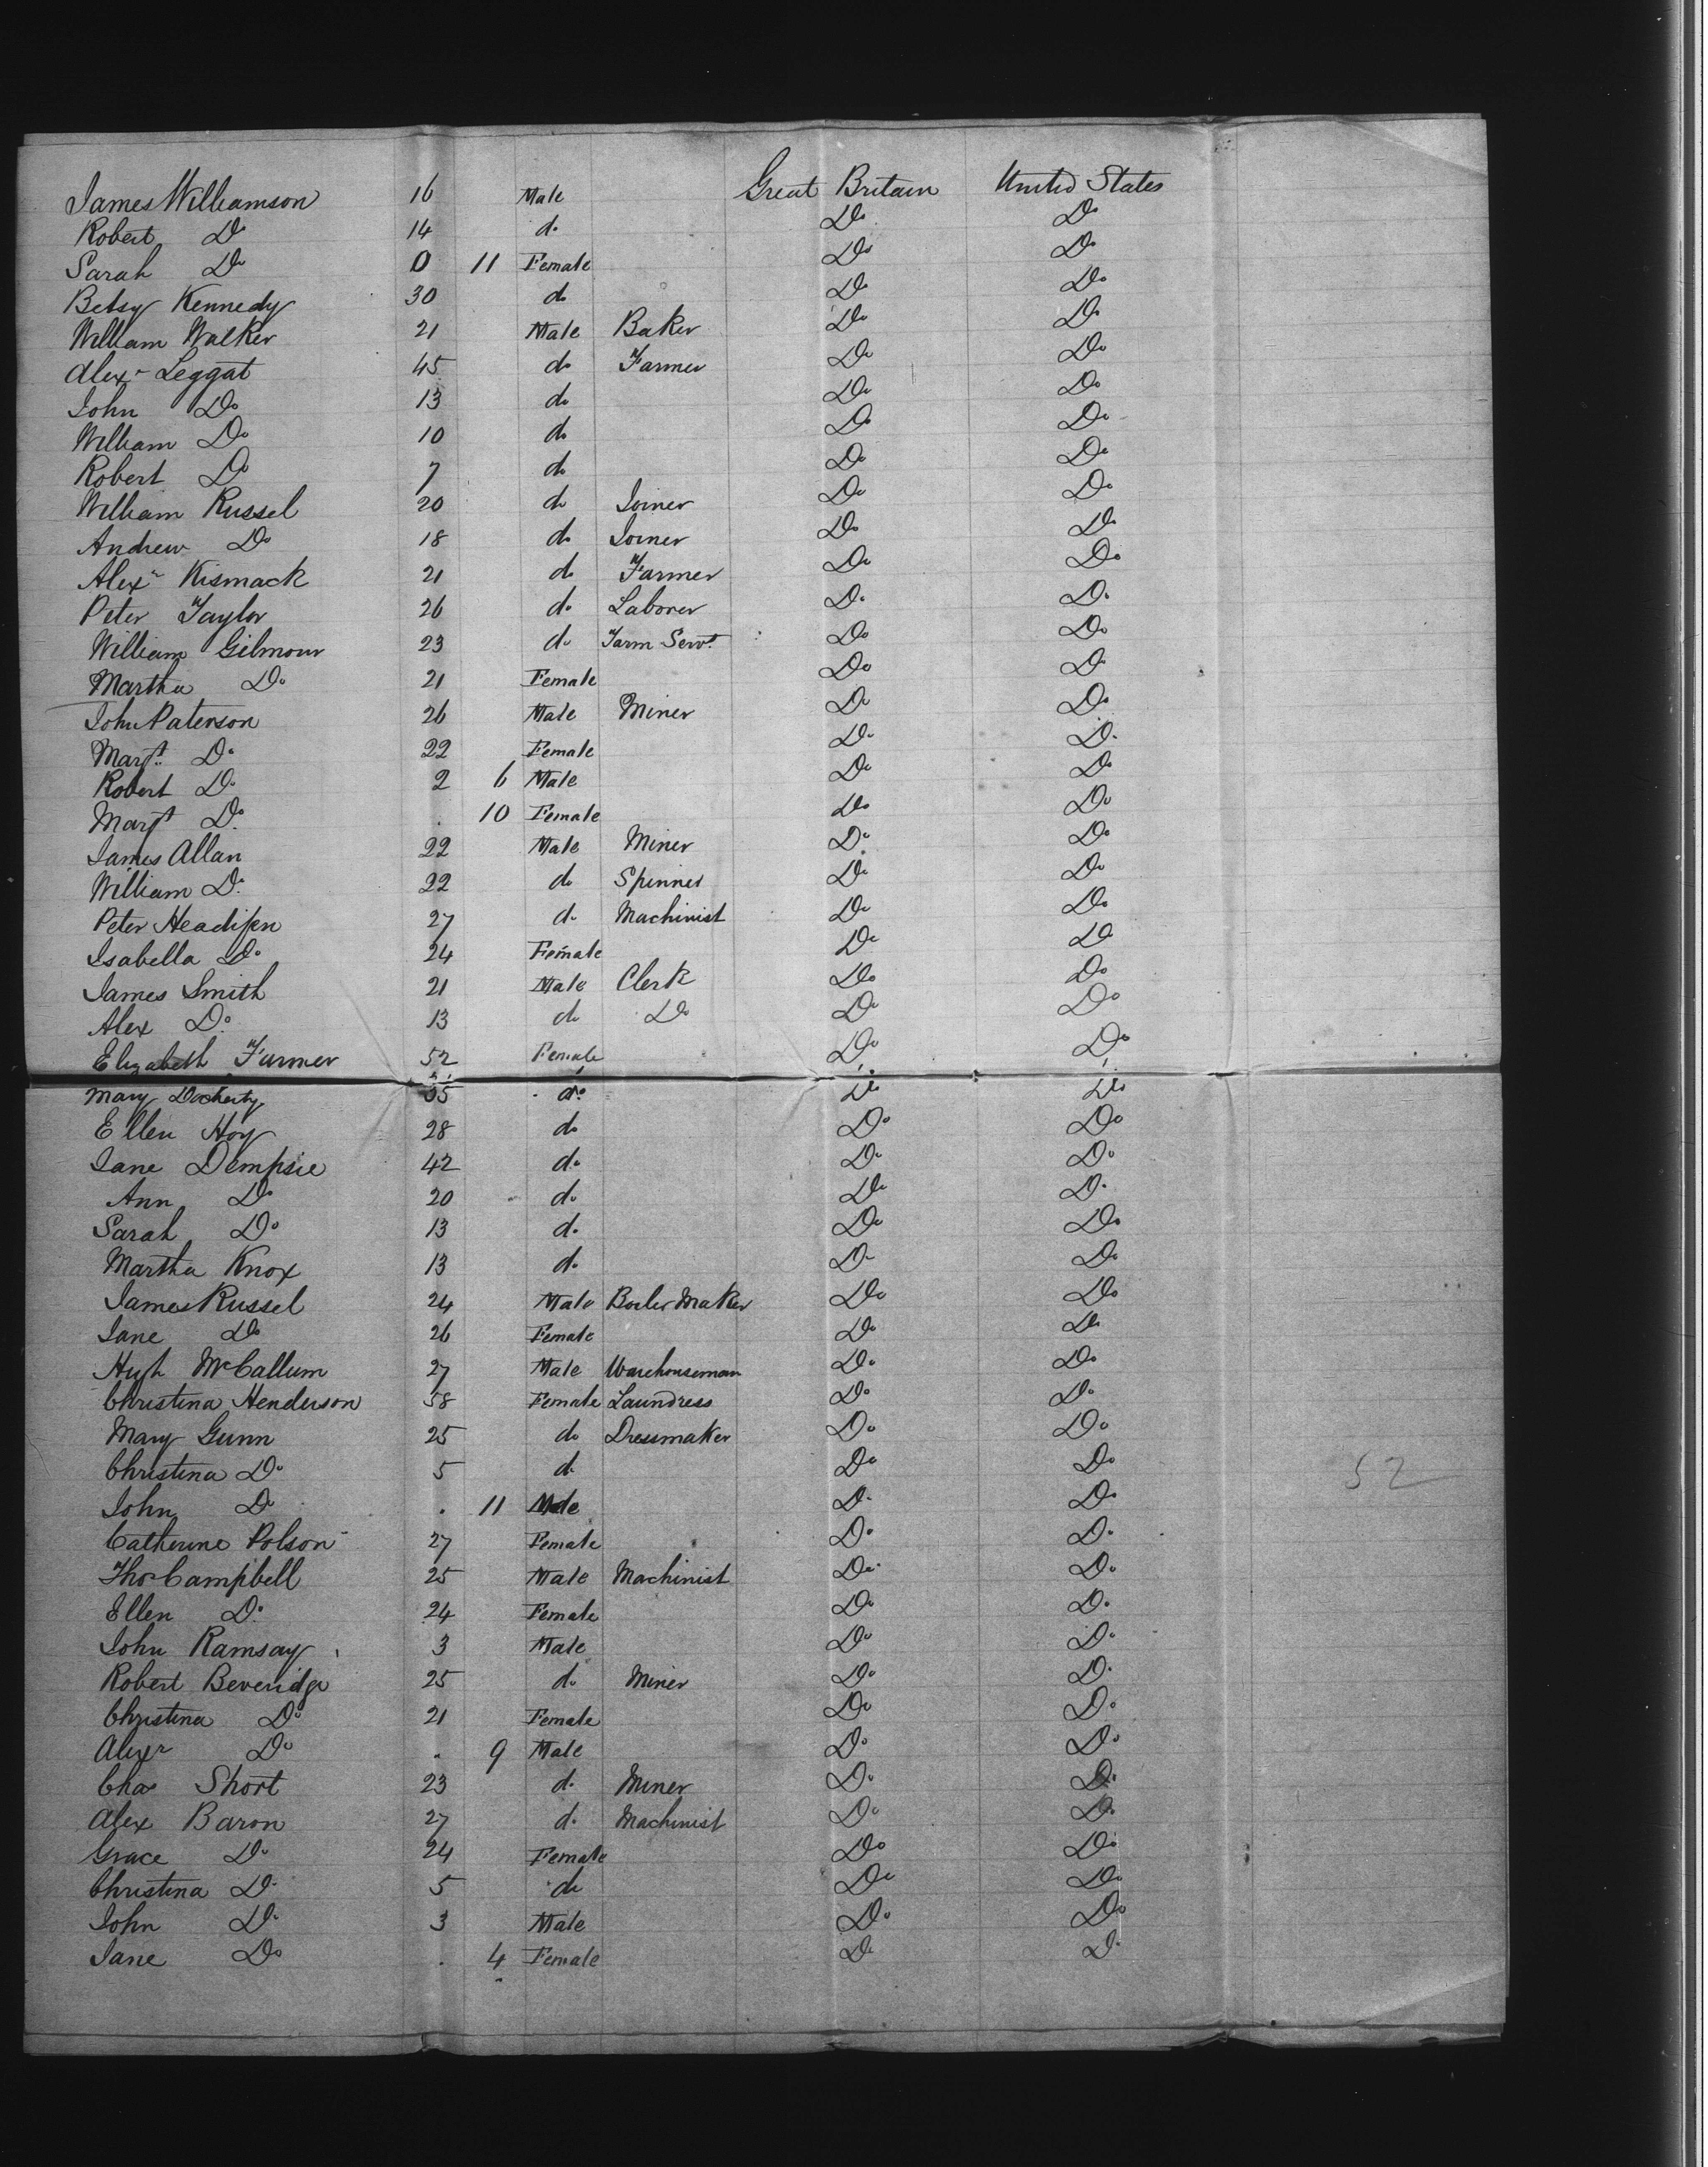 James Williamson 16 Male Great Britain United States
Robert Do 14 do Do Do
Sarah Do 0 11 Female Do Do
Betsy Kennedy 30 do Do Do
William Walker 21 Male Baker Do Do
Alexr Leggat 45 do Farmer Do Do
John Do 13 do Do Do
William Do 10 do Do Do
Robert Do 7 do Do Do
William Russel 20 do Joiner Do Do
Andrew Do 18 do Joiner Do Do
Alexr Kismack 21 do Farmer Do Do
Peter Taylor 26 do Laborer Do Do
William Gilmour 23 do Farm Servt Do Do
Martha Do 21 Female Do Do
John Paterson 26 Male Miner Do Do
Margt Do 22 Female Do Do
Robert Do 2 6 Male Do Do
Margt Do . 10 Female Do Do
James Allan 22 Male Miner Do Do
William Do 22 do Spinner Do Do
Peter 27 do Machinist Do Do
Isabella Do 24 Female Do Do
James Smith 21 Male Clerk Do Do
Alex Do 13 do Do Do Do
Elizabeth Farmer 52 Female Do Do
Mary Docherty 35 do Do Do
Ellen Hoy 28 do Do Do
Jane Dempsie 42 do Do Do
Ann Do 20 do Do Do
Sarah Do 13 do Do Do
Martha Knox 13 do Do Do
James Russel 24 Male Boiler Maker Do Do
Jane Do 26 Female Do Do
Hugh McCallum 27 Male Warehouseman Do Do
Christina Henderson 58 Female Laundress Do Do
Mary Gunn 25 do Dressmaker Do Do
Christina Do 5 do Do Do 52
John Do . 11 Male Do Do
Catherine Polson 27 Female Do Do
Thos Campbell 25 Male Machinist Do Do
Ellen Do 24 Female Do Do
John Ramsay 3 Male Do Do
Robert Beveridge 25 do Miner Do Do
Christina Do 21 Female Do Do
Alexr Do . 9 Male Do Do
Chas Short 23 do Miner Do Do
Alex Baron 27 do Machinist Do Do
Grace Do 24 Female Do Do
Christina Do 5 do Do Do
John Do 3 Male Do Do
Jane Do . 4 Female Do Do